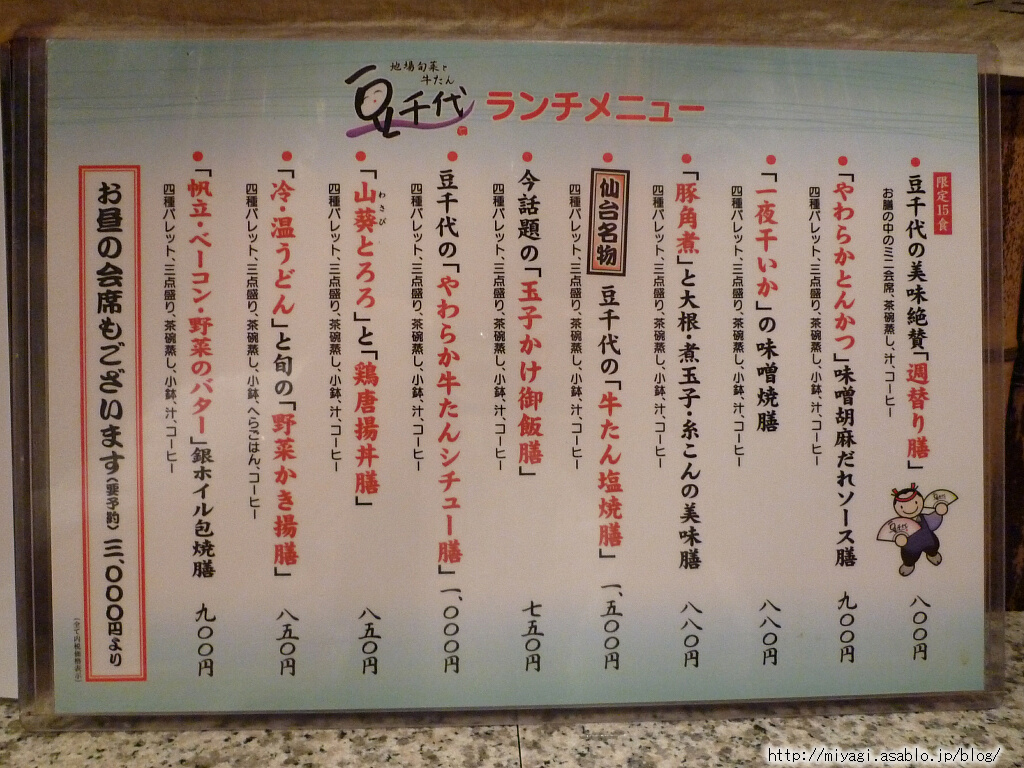 地場旬菜と
牛たん
豆千代の
ランチメニュー
限定15食
●豆千代の美味絶賛「週替り膳」 八〇〇円
お膳の中のミニ会席、茶碗蒸し、汁、コーヒー
●「やわらかとんかつ」味噌胡麻だれソース膳 九〇〇円
四種パレット、三点盛り、茶碗蒸し、小鉢、汁、コーヒー
●「一夜干いか」の味噌焼膳 八八〇円
四種パレット、三点盛り、茶碗蒸し、小鉢、汁、コーヒー
●「豚角煮」と大根・煮玉子・糸こんの美味膳 八八〇円
四種パレット、三点盛り、茶碗蒸し、小鉢、汁、コーヒー
●仙台名物 豆千代の「牛たん塩焼膳」 一、五〇〇円
四種パレット、三点盛り、茶碗蒸し、小鉢、汁、コーヒー
●今話題の「玉子かけ御飯膳」 七五〇円
四種パレット、三点盛り、茶碗蒸し、小鉢、汁、コーヒー
●豆千代の「やわらか牛たんシチュー膳」 一、〇〇〇円
四種パレット、三点盛り、茶碗蒸し、小鉢、汁、コーヒー
●「山葵とろろ」と「鶏唐揚丼膳」 八五〇円
わさび
四種パレット、三点盛り、茶碗蒸し、小鉢、汁、コーヒー
●「冷・温うどん」と旬の「野菜かき揚膳」 八五〇円
四種パレット、三点盛り、茶碗蒸し、小鉢、へらごはん、コーヒー
●「帆立・ベーコン・野菜のバター」銀ホイル包焼膳 九〇〇円
四種パレット、三点盛り、茶碗蒸し、小鉢、汁、コーヒー
お昼の会席もございます〈要予約〉 三、〇〇〇円より
(全て内税価格表示)
http://miyagi.asablo.jp/blog/